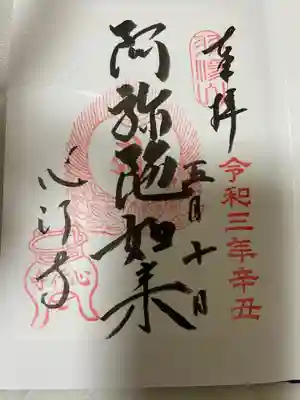 奉拝
令和三年辛丑
五月十日
阿弥陀如来
心行寺